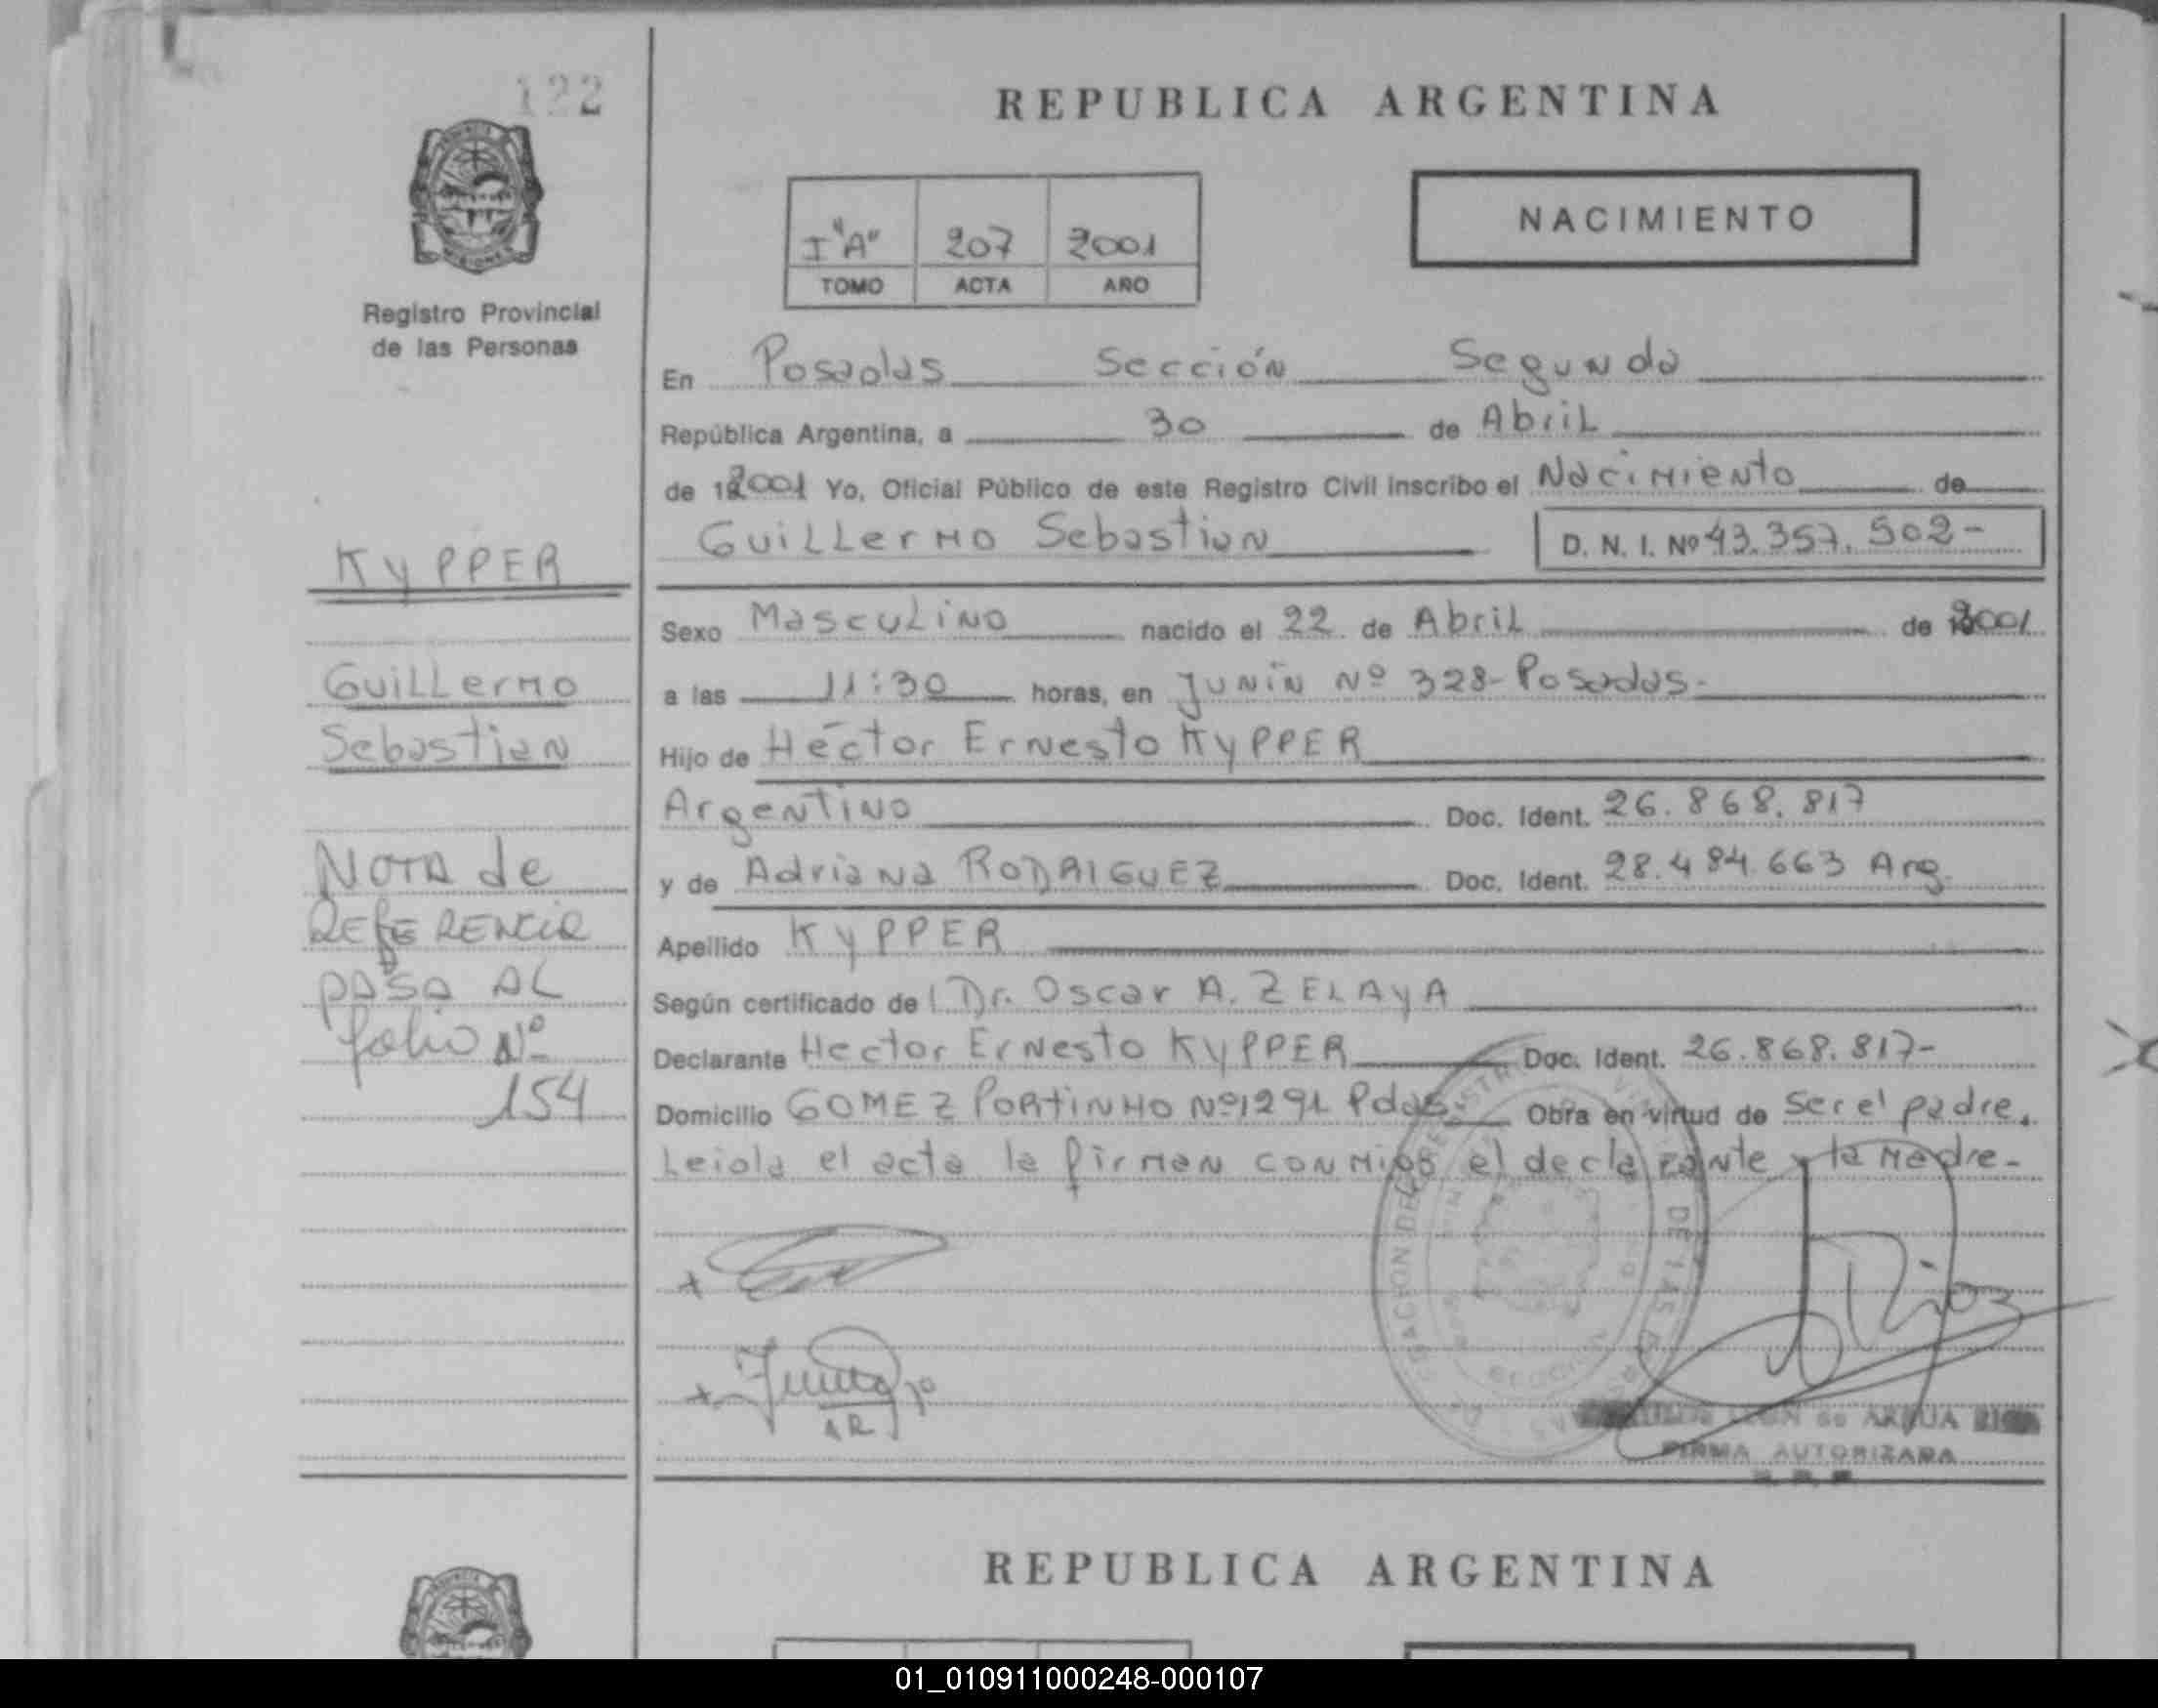 122
REPUBLICA ARGENTINA
I "A" 207 2001
TOMO ACTA AÑO
NACIMIENTO
Registro Provincial
de las Personas
En Posadas Sección Segunda
República Argentina, a 30 de Abril
de 2001 Yo, Oficial Público de este Registro Civil inscribo el Nacimiento de
Guillermo Sebastian D. N. I. Nº 43.357.502-
KYPPER
Guillermo
Sebastian
Sexo Masculino nacido el 22 de Abril de 2001
a las 11:30 horas, en Junin Nº 328-Posadas-
Hijo de Héctor Ernesto KYPPER
Argentino Doc. Ident. 26.868.817
y de Adriana RODRIGUEZ Doc. Ident. 28.484.663 Arg.
Apellido KYPPER
Según certificado de Dr. Oscar A. ZELAYA
Declarante Hector Ernesto KYPPER Doc. Ident. 26.868.817-
Domicilio GOMEZ PORTINHO Nº1291 Pdas. Obra en virtud de ser el padre.
Leida el acta la firman conmigo el declarante y la madre-
NOTA de
REFERENCIA
PASA AL
folio Nº
154
FIRMA AUTORIZADA
REPUBLICA ARGENTINA
01_010911000248-000107